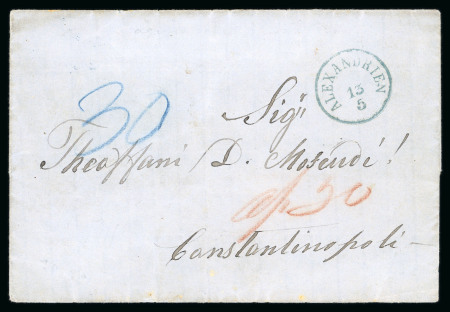 ALEXANDRIEN
13
5
30
Sigr
Theoffani D. Mosendi!
30
Constantinopoli